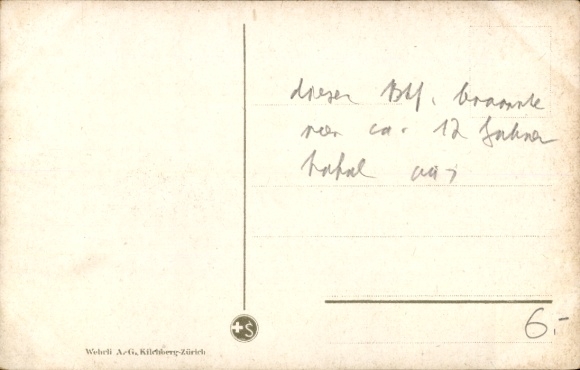 dieser Bhf. brannte
vor ca. 12 Jahren
total aus
+S
Wehrli A.-G., Kilchberg-Zürich
6.-